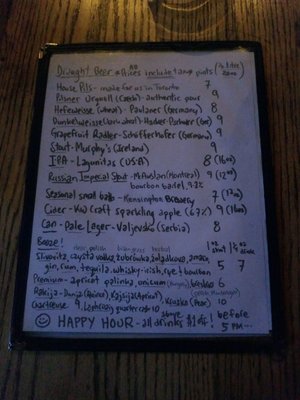 Draught Beer
Prices include tax
House Pils - made for us in Toronto 7
Pilsner Urquell (Czech) - authentic pour 9
Hefeweisse (wheat) - Paulaner (Germany) 8
Dunkelweisse (dark wheat) - Hacker-Pschorr (Ger) 9
Grapefruit Radler - Schöfferhofer (Germany) 9
Stout - Murphy's (Ireland) 9
IPA - Lagunitas (USA) 8 (16oz)
Russian Imperial Stout - McAuslan (Montreal) 9 (12oz)
bourbon barrel, 9.2%
Seasonal small batch - Kensington Brewery 7 (12oz)
Cider - KW Craft sparkling apple (6.7%) 9 (16oz)
Can - Pale Lager - Valjevsko (Serbia) 8
Booze!
Slivovitz, czysta vodka, żubrówka, żoladkowa,
gin, rum, tequila, whisky - irish, rye + bourbon 5 7
Premium - apricot palinka, unicum 6
Rakija - Dunja (Quince) Kajsija (Apricot) Kruska (Pear) 10
Chartreuse 9, Laphroaig quarter cask 10
HAPPY HOUR - all drinks above before
5 PM...